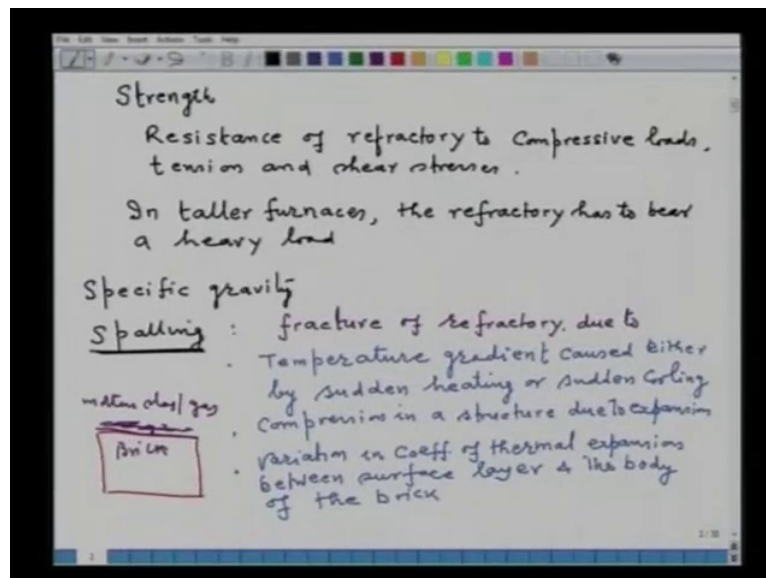 File Edit View Insert Actions Tools Help
Strength
Resistance of refractory to Compressive loads,
tension and shear stresses.
In taller furnaces, the refractory has to bear
a heavy load
Specific gravity
Spalling : fracture of refractory. due to
. Temperature gradient caused Either
by sudden heating or sudden Cooling
molten slag/gas
. Compression in a structure due to expansion
Brick
. variation in Coeff of thermal expansion
between surface layer & the body
of the brick
2/30
2